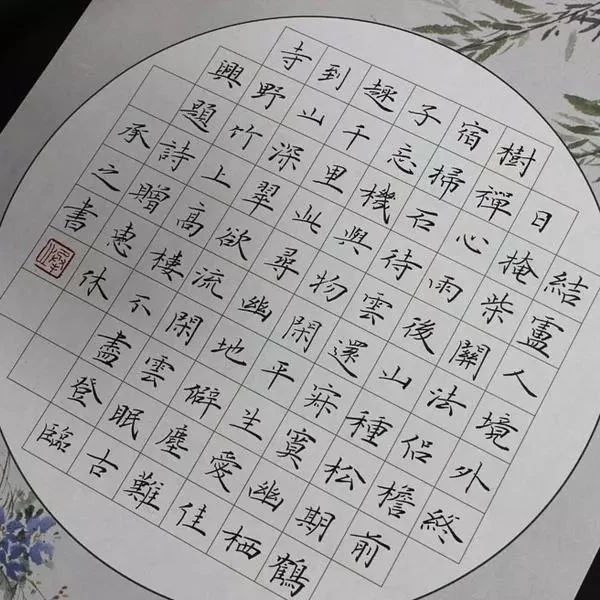 結盧人境外終
日掩柴關法侶檐前
樹禪心雨後山種松期鶴
宿掃石待雲還寂寞幽栖
子忘機與物閑平生愛佳
趣千里此尋幽地僻塵難
到山深翠欲流閑雲眠古
寺野竹上高棲不盡登臨
興題詩贈惠休
承之書